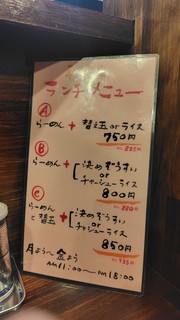 ランチメニュー
Ⓐ
らーめん + 替え玉 or ライス
750円
Ⓑ
らーめん + 決めぞうすい
or
チャーシューライス
800円
Ⓒ
らーめん
と替玉 + 決めぞうすい
or
チャーシューライス
850円
月よう〜金よう
AM11:00〜PM18:00